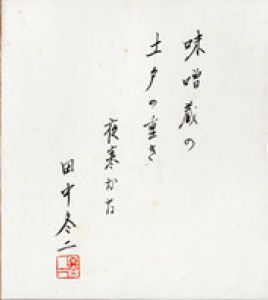 味噌蔵の
土戸の重き
夜寒かな
田中冬二